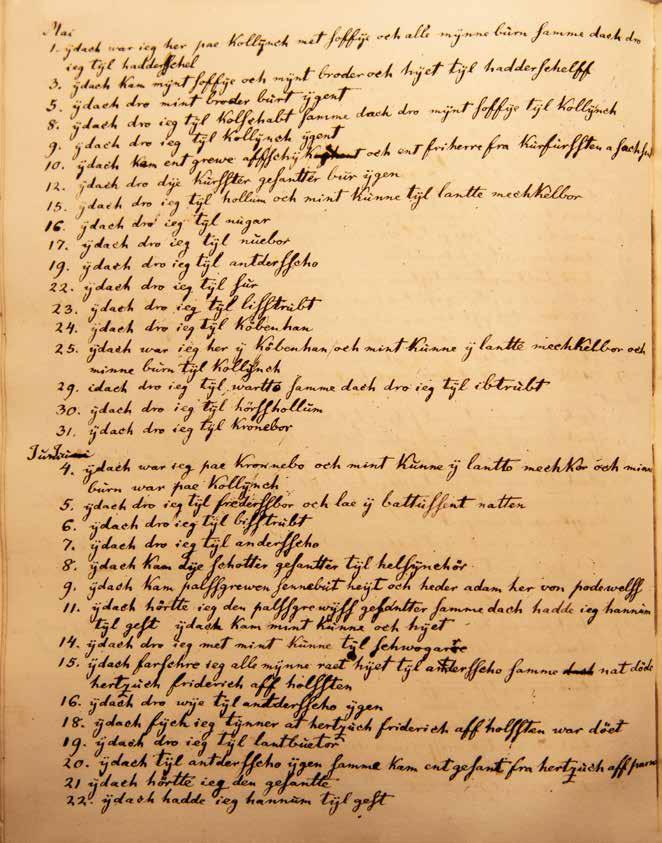 Mai
1. ÿdach war ieg her pae Kollÿnch met soffÿe och alle mÿnne bürn samme dach dro
ieg tÿl hadderschel
3. ÿdach kam mÿnt soffÿe och mÿnt broder och hÿet tÿl hadderschelff
5. ÿdach dro mint broder bürt ÿgent
8. ÿdach dro ieg tÿl Kolschabt samme dach dro mÿnt soffÿe tÿl Kollÿnch
9. ÿdach dro ieg tÿl Kollÿnch ÿgent
10. ÿdach kam ent grewe och ent friherre fra Kürfürssten a
12. ÿdach dro dÿe kürsster gesantter bür ÿgen
15. ÿdach dro ieg tÿl hollum och mint Künne tÿl lantte mechkelbor
16. ÿdach dro ieg tÿl nügar
17. ÿdach dro ieg tÿl nüebor
19. ÿdach dro ieg tÿl antderssho
22. ÿdach dro ieg tÿl sür
23. ÿdach dro ieg tÿl lisstrübt
24. ÿdach dro ieg tÿl Köbenhan
25. ÿdach war ieg her ÿ Köbenhan och mint Künne ÿ lantte mechkelbor och
minne bürn tÿl Kollÿnch
29. idach dro ieg tÿl wartto samme dach dro ieg tÿl ibtrübt
30. ÿdach dro ieg tÿl hörsshollum
31. ÿdach dro ieg tÿl Kronebor
4. ÿdach war ieg pae Kronnebo och mint Künne ÿ lantto mechkor och minne
bürn war pae Kollÿnch
5. ÿdach dro ieg tÿl frederssbor och lae ÿ battüssent natten
6. ÿdach dro ieg tÿl bisstrübt
7. ÿdach dro ieg tÿl anderssho
8. ÿdach kam dÿe schotter gesantter tÿl helsÿnchör
9. ÿdach kam palssgrewen sennebüt heÿt och heder adam her von podewelss
11. ÿdach hörtte ieg den palssgrewÿss gesantter samme dach hadde ieg hannüm
tÿl gest ÿdach kam mint künne och hÿet
14. ÿdach dro ieg met mint Künne tÿl schwogarte
15. ÿdach farschre ieg alle mÿnne raet hÿet tÿl antderssho samme nat döde
hertzüch friderich aff holssten
16. ÿdach dro wÿe tÿl antderssho ÿgen
18. ÿdach fÿch ieg tÿnner at hertzüch friderich aff holssten war döet
19. ÿdach dro ieg tÿl lantbüetor
20. ÿdach tÿl antderssho ÿgen samme kam ent gesant fra hertzüch aff
21 ÿdach hörtte ieg den gesantte
22. ÿdach hadde ieg hannüm tÿl gest